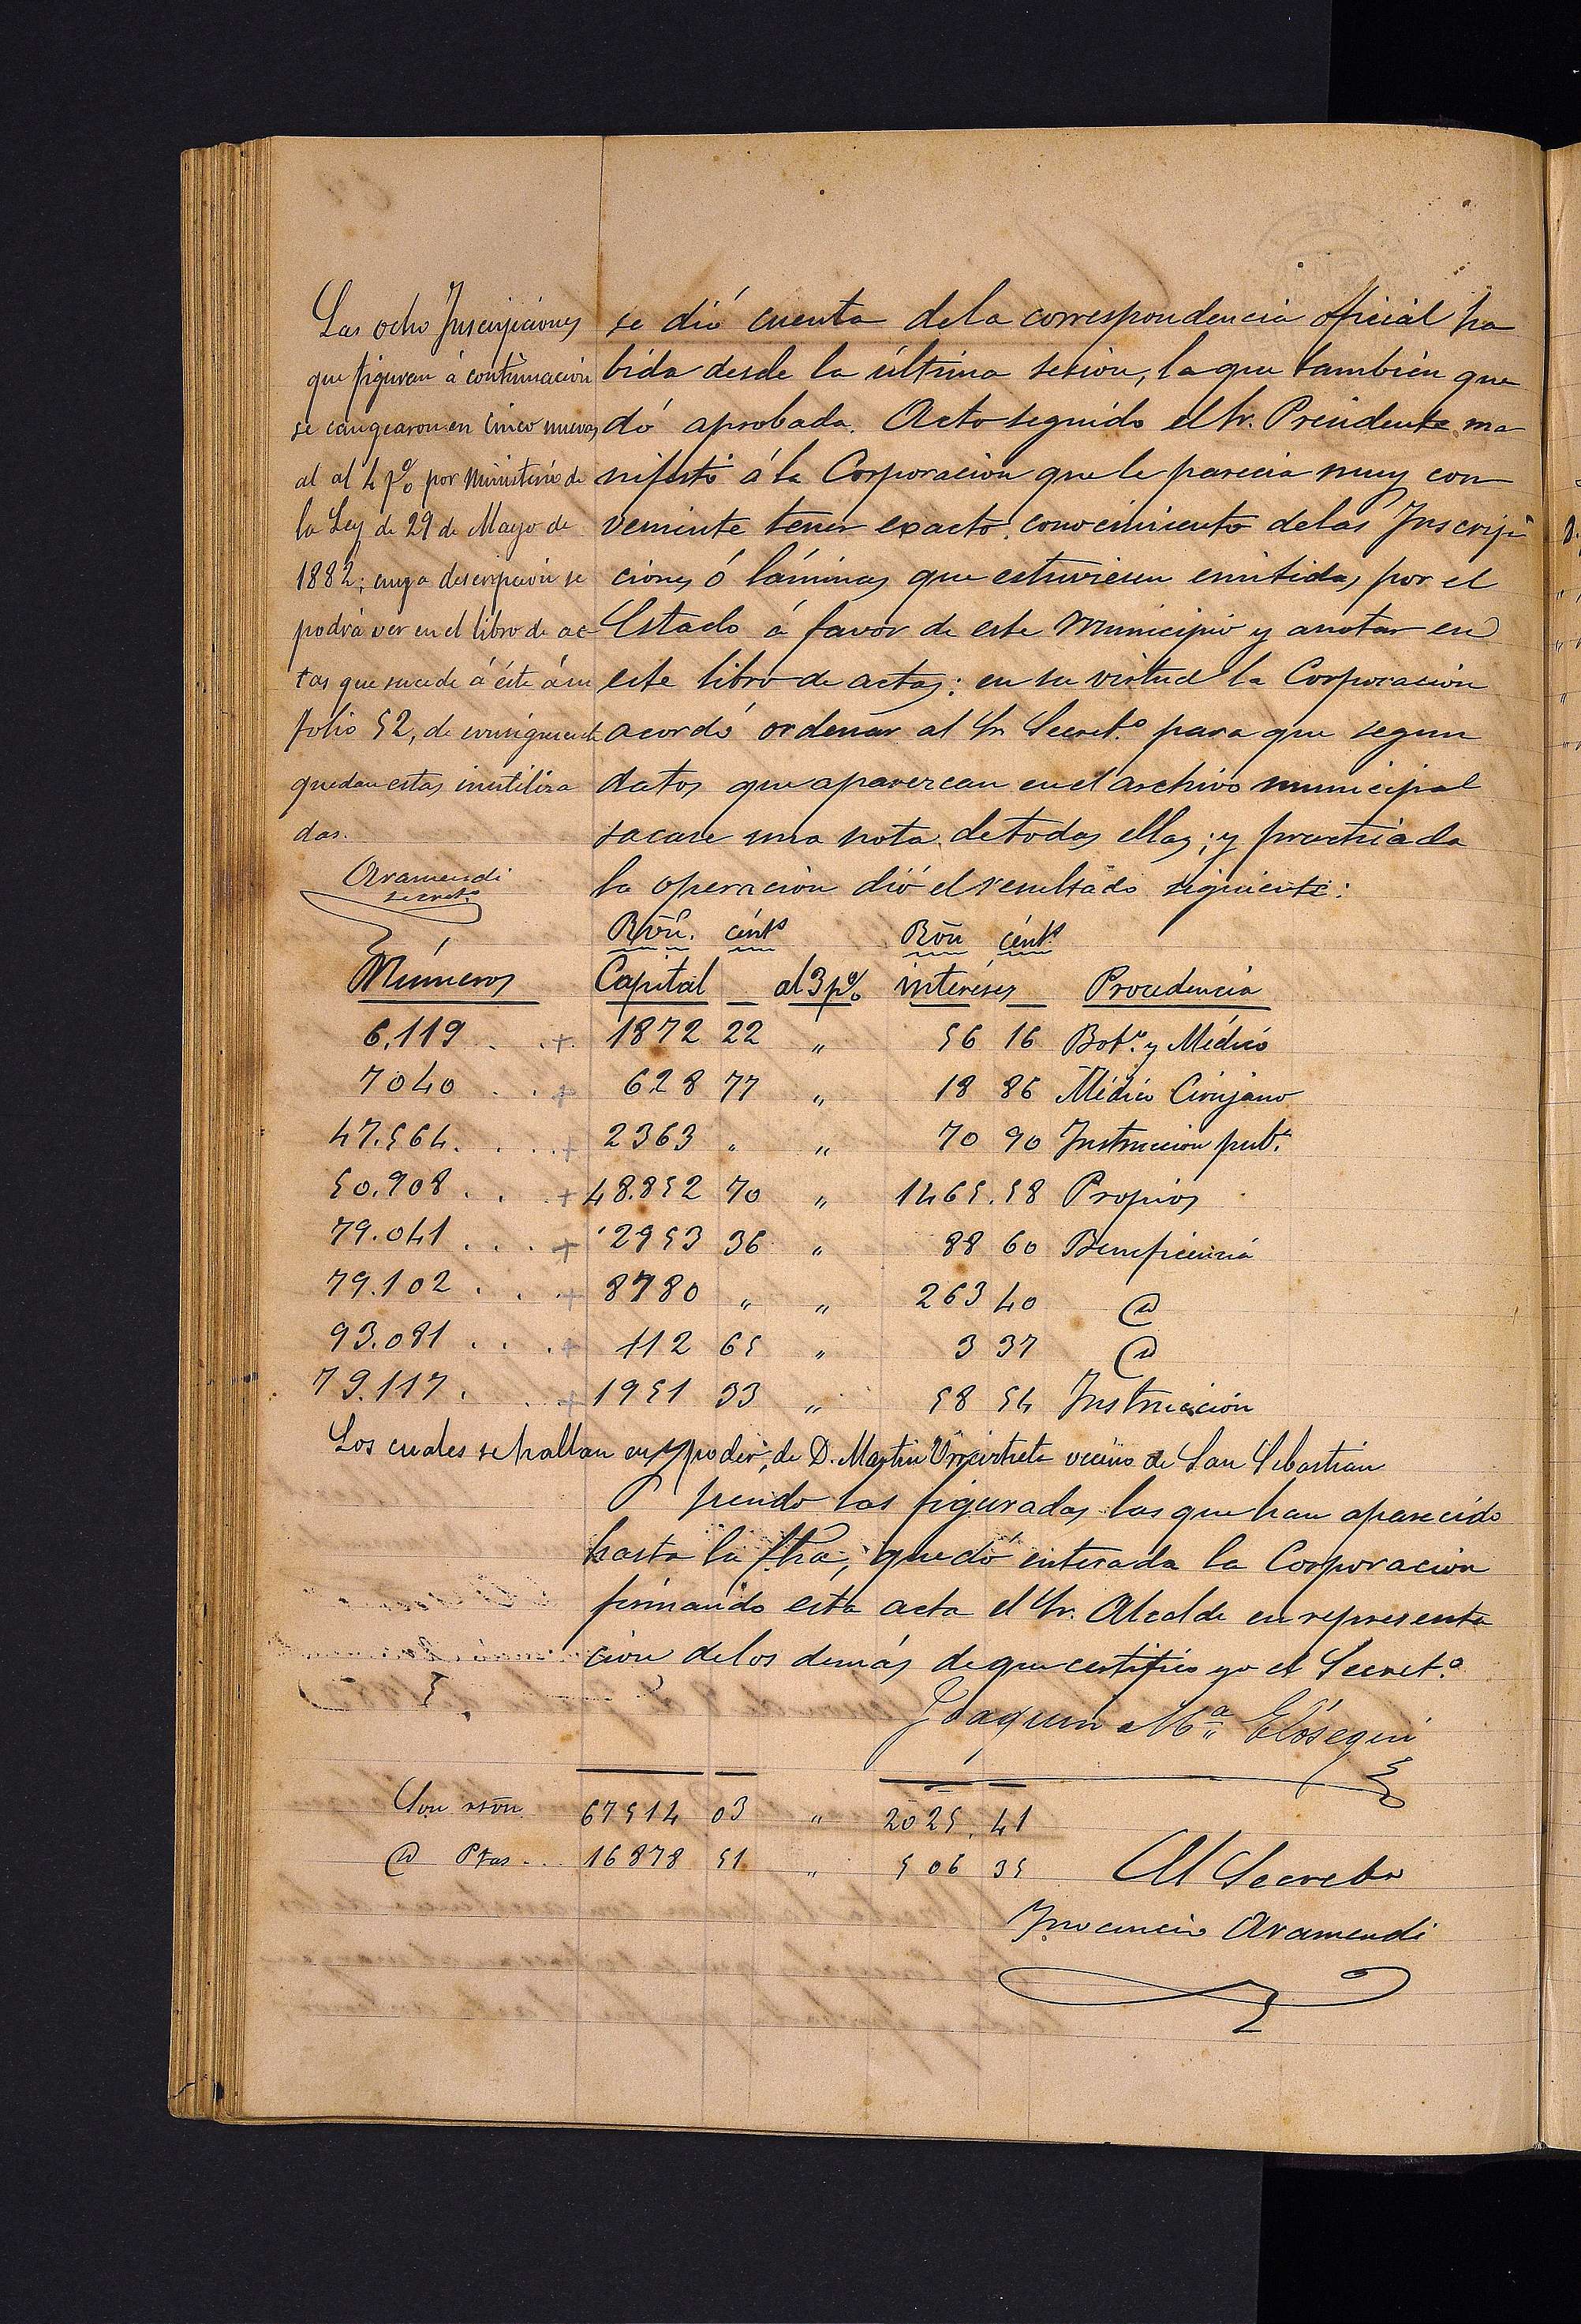 Las ocho Inscripciones
que figuran á continuacion
se cangearon en cinco nuevas
al al 4 p% por ministerio de
la Ley de 29 de Mayo de
1882; cuya descripcion se
podrá ver en el libro de ac-
tas que sucede á éste á su
folio 52, de consiguiente
quedan estas inutiliza
das.
Aramendi
secret.º
se dió cuenta dela correspondencia oficial ha
bida desde la última sesion, la que también que
dó aprobada. Acto seguido el Sr. Presidente ma
nifestó á la Corporacion que le parecia muy con
veniente tener exacto conocimiento delas Inscrip
ciones ó láminas que estuviesen emitidas por el
Estado á favor de este Municipio y anotar en
este libro de actas: en su virtud la Corporacion
acordó ordenar al Sr. Secret.º para que segun
datos que aparezcan en el archivo municipal
sacase una nota de todas ellas; y practicada
la operacion dió el resultado siguiente:
Rvn. cénts Rvn cénts
Números Capital al 3 p% intereses Procedencia
6.119 . . + 1872 22 " 56 16 Bot.º y Médico
7040 . . + 628 77 " 18 86 Médico Cirujano
47.564 . . . + 2363 " " 70 90 Instruccion pub.ª
50.908 . . + 48.852 70 " 1465.58 Propios
79.041 . . . + 2953 36 " 88 60 Beneficencia
79.102 . . + 8780 " " 263 40 @
93.081 . . . + 112 65 " 3 37 @
79.117 . . + 1951 33 " 58 54 Instruccion
Los cuales se hallan en poder de D. Martin Urreiztieta vecino de San Sebastian
Y siendo las figuradas las que han aparecido
hasta la fha, quedó enterada la Corporacion
firmando esta acta el Sr. Alcalde en representa
cion delos demás de que certifico yo el Secret.º
Joaquin Mª Elósegui
Son rvon. 67514 03 " 2025.41
@ Ptas .. 16878 51 " 506 35
El Secreto
Inocencio Aramendi